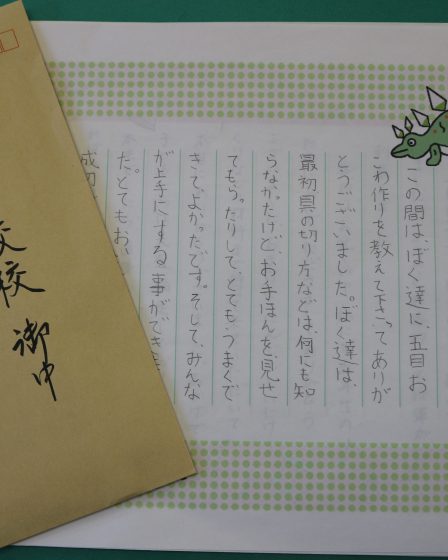 この間は、ぼく達に、五目お
こわ作りを教えて下さってありが
とうございました。ぼく達は、
最初具の切り方などは、何にも知
らなかったけど、お手ほんを、見せ
てもらったりして、とても、うまくで
きて、よかったです。そして、みんな
が上手にする事ができ
た。とてもおい
成功
校 御中